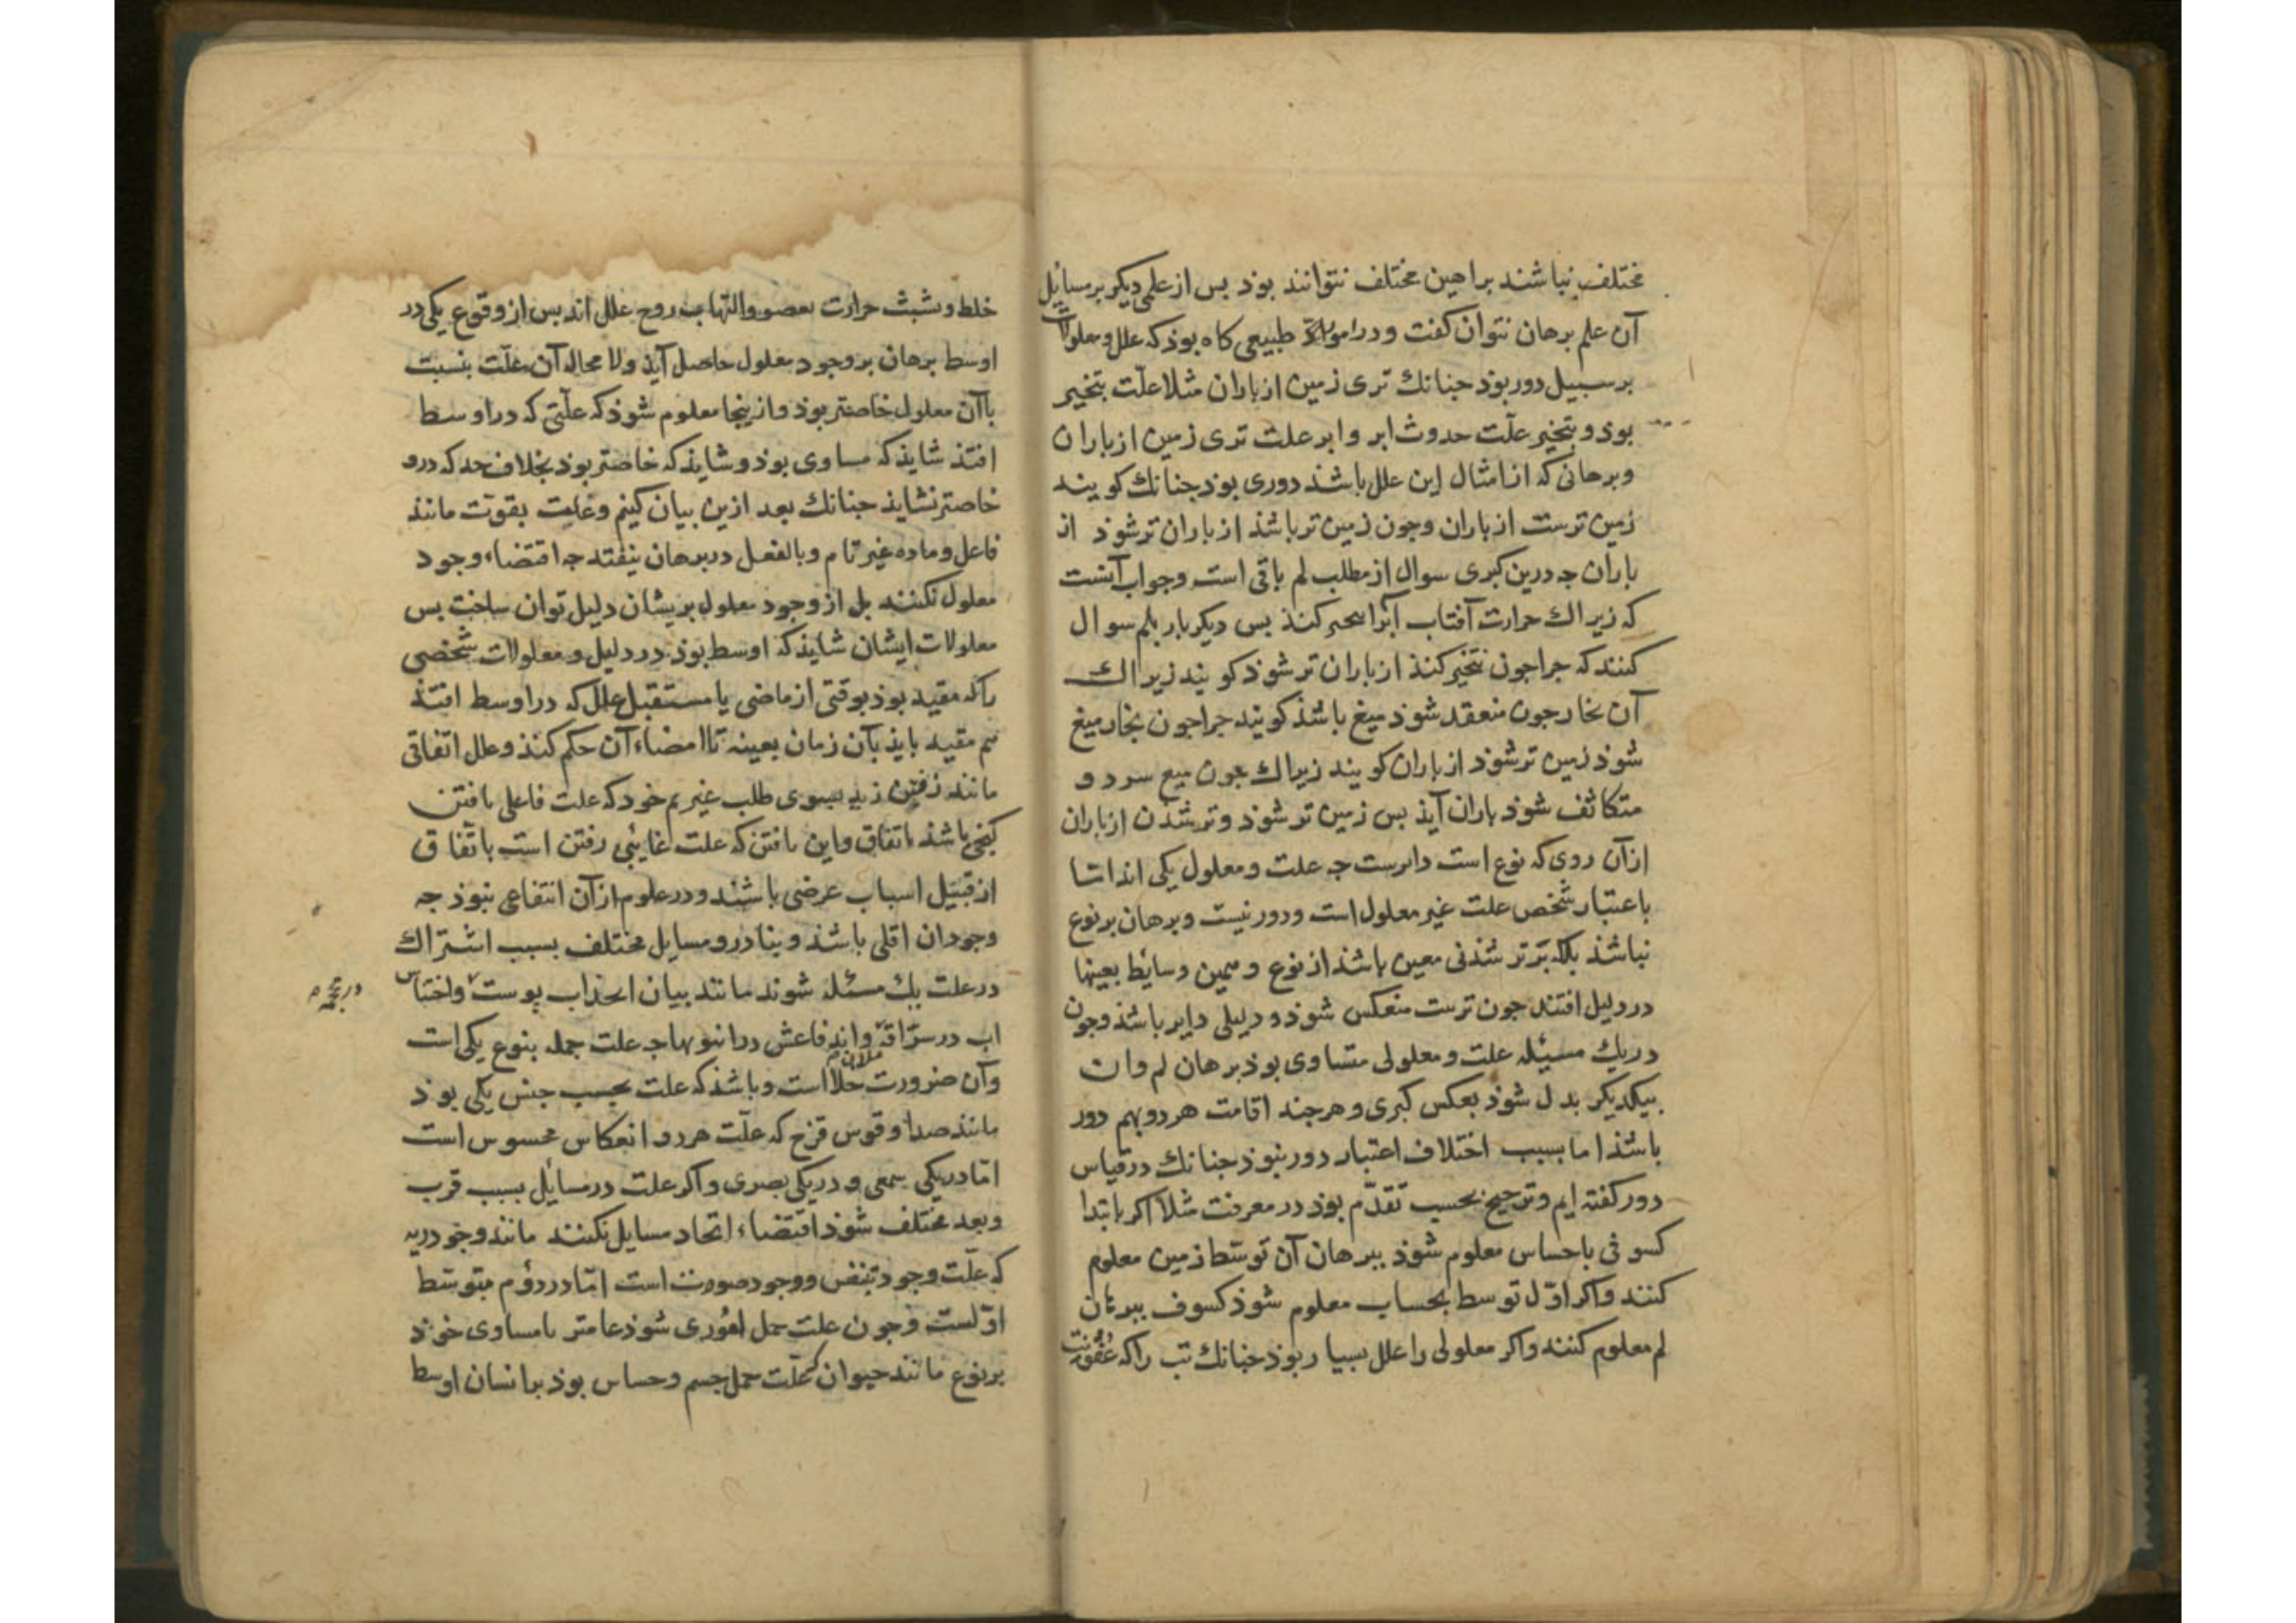 مختلف نباشند براهین مختلف نتوانند بوذ بس از علمی دیکر بر مسایل
آن علم برهان نتوان کفت و در امور طبیعی کاه بوذ که علل و معلولات
بر سبیل دور بوذ جنانك تری زمین از باران مثلا علّت تبخیر
بوذ و تبخیر علّت حدوث ابر و ابر علت تری زمین از باران
و برهانی که از امثال این علل باشذ دوری بوذ جنانك کویند
زمین ترست از باران و جون زمین تر باشذ از باران تر شوذ از
باران جه درین کبری سوال از مطلب لم باقی است و جواب آنست
که زیراك حرارت آفتاب آنرا کنذ بس دیکر بار بلم سوال
کنند که جرا جون تبخیر کنذ از باران تر شوذ کویند زیراك
آن بخار جون منعقد شوذ میغ باشذ کویند جرا جون بخار میغ
شوذ زمین تر شوذ از باران کویند زیراك جون میغ سرد و
متکاثف شوذ باران آیذ بس زمین تر شوذ و تر شدن از باران
از آن روی که نوع است دایرست جه علت و معلول یکی اند اما
باعتبار شخص علت غیر معلول است و دور نیست و برهان بر نوع
نباشذ بلکه بر تر شذنی معین باشذ از نوع و همین وسایط بعینها
در دلیل افتند جون ترست منعکس شوذ و دلیلی دایر باشذ و جون
در یك مسئله علت و معلولی متساوی بوذ برهان لم و ان
بیکدیکر بدل شوذ بعکس کبری و هر جند اقامت هر دو بهم دور
باشذ اما بسبب اختلاف اعتبار دور نبوذ جنانك در قیاس
دور کفته ایم و ترجیح بحسب تقدّم بوذ در معرفت مثلا اکر بابتدا
کسوفی باحساس معلوم شوذ ببرهان آن توسّط زمین معلوم
کنند و اکر اوّل توسط بحساب معلوم شوذ کسوف ببرهان
لم معلوم کنند و اکر معلولی را علل بسیار بوذ جنانك تب را که عفونت
خلط و تشبث حرارت بعضو و التهاب روح علل اند بس از وقوع یکی در
اوسط برهان بر وجود معلول حاصل آیذ و لا محاله آن علّت بنسبت
با آن معلول خاصتر بوذ و ازینجا معلوم شوذ که علّتی که در اوسط
افتذ شایذ که مساوی بوذ و شایذ که خاصتر بوذ بخلاف حد که درو
خاصتر نشایذ جنانك بعد ازین بیان کنیم و علت بقوّت مانند
فاعل و ماده غیر تام و بالفعل در برهان نیفتد جه اقتضاء وجود
معلول نکنند بل از وجود معلول بریشان دلیل توان ساخت بس
معلولات ایشان شایذ که اوسط بوذ در دلیل و معلولات شخصی
را که مقید بوذ بوقتی از ماضی یا مستقبل علل که در اوسط افتذ
هم مقید بایذ بآن زمان بعینه تا امضاء آن حکم کنذ و علل اتفاقی
مانند رفتن زید بسوی طلب غیریم خود که علت فاعلی یافتن
کنجی باشذ باتفاق و این یافتن که علت غایی رفتن است باتّفاق
از قبیل اسباب عرضی باشند و در علوم از آن انتفاعی نبوذ جه
وجود آن اقلی باشذ و بنادر و مسایل مختلف بسبب اشتراك
در علت یك مسئله شوند مانند بیان انجذاب پوست و احتباس
اب در سرّاقه و اندفاعش در انبوبها جه علت جمله بنوع یکی است
و آن ضرورت خلا است و باشذ که علت بحسب جنس یکی بوذ
مانند صدا و قوس قزح که علّت هر دو انعکاس محسوس است
امّا در یکی سمعی و در یکی بصری و اکر علت در مسایل بسبب قرب
و بعد مختلف شوذ اقتضاء اتحاد مسایل نکنند مانند وجود ریه
که علّت وجود تنفس و وجود صوت است امّا در دوّم بتوسّط
اوّلست و جون علت حمل اموری شوذ عامتر یا مساوی خوذ
بر نوع مانند حیوان که علّت حمل جسم و حساس بوذ بر انسان اوسط